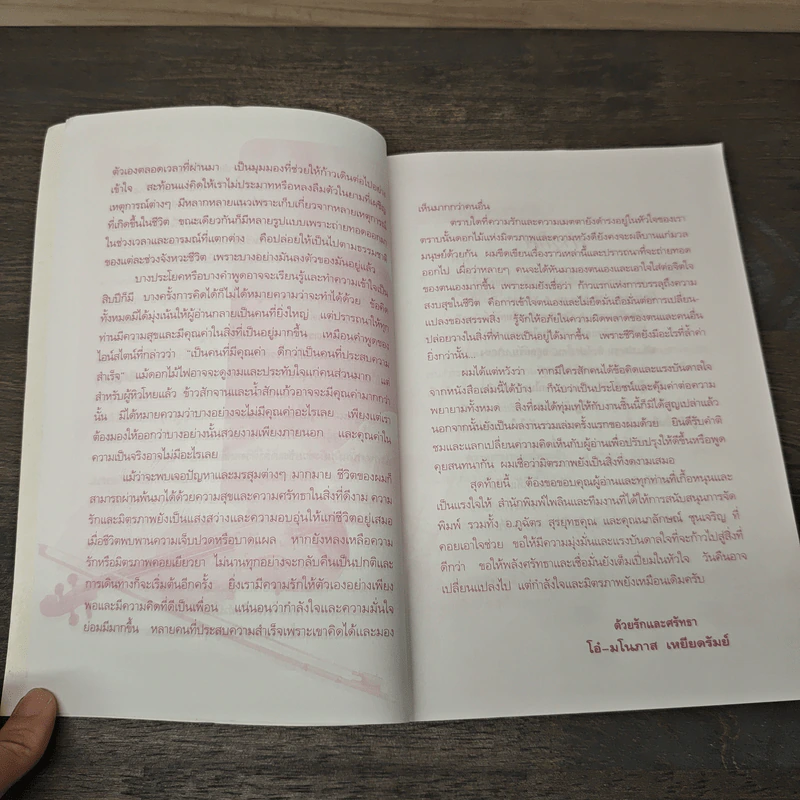 ตัวเองตลอดเวลาที่ผ่านมา เป็นมุมมองที่ช่วยให้ก้าวเดินต่อไปอย่าง
เข้าใจ สะท้อนแง่คิดให้เราไม่ประมาทหรือหลงลืมตัวในยามที่เผชิญ
เหตุการณ์ต่างๆ มีหลากหลายแนวเพราะเก็บเกี่ยวจากหลายเหตุการณ์
ที่เกิดขึ้นในชีวิต ขณะเดียวกันก็มีหลายรูปแบบเพราะถ่ายทอดออกมา
ในช่วงเวลาและอารมณ์ที่แตกต่าง คือปล่อยให้เป็นไปตามธรรมชาติ
ของแต่ละช่วงจังหวะชีวิต เพราะบางอย่างมันลงตัวของมันอยู่แล้ว
บางประโยคหรือบางคำพูดอาจจะเรียนรู้และทำความเข้าใจเป็น
สิบปีก็มี บางครั้งการคิดได้ก็ไม่ได้หมายความว่าจะทำได้ด้วย ข้อคิด
ทั้งหมดมิได้มุ่งเน้นให้ผู้อ่านกลายเป็นคนที่ยิ่งใหญ่ แต่ปรารถนาให้ทุก
ท่านมีความสุขและมีคุณค่าในสิ่งที่เป็นอยู่มากขึ้น เหมือนคำพูดของ
ไอน์สไตน์ที่กล่าวว่า "เป็นคนที่มีคุณค่า ดีกว่าเป็นคนที่ประสบความ
สำเร็จ" แม้ดอกไม้ไฟอาจจะดูงามและประทับใจแก่คนส่วนมาก แต่
สำหรับผู้หิวโหยแล้ว ข้าวสักจานและน้ำสักแก้วอาจจะมีคุณค่ามากกว่า
นั้น มิได้หมายความว่าบางอย่างจะไม่มีคุณค่าอะไรเลย เพียงแต่เรา
ต้องมองให้ออกว่าบางอย่างนั้นสวยงามเพียงภายนอก และคุณค่าใน
ความเป็นจริงอาจไม่มีอะไรเลย
แม้ว่าจะพบเจอปัญหาและมรสุมต่างๆ มากมาย ชีวิตของผมก็
สามารถผ่านพ้นมาได้ด้วยความสุขและความศรัทธาในสิ่งที่ดีงาม ความ
รักและมิตรภาพยังเป็นแสงสว่างและความอบอุ่นให้แก่ชีวิตอยู่เสมอ
เมื่อชีวิตพบพานความเจ็บปวดหรือบาดแผล หากยังหลงเหลือความ
รักหรือมิตรภาพคอยเยียวยา ไม่นานทุกอย่างจะกลับคืนเป็นปกติและ
การเดินทางก็จะเริ่มต้นอีกครั้ง ยิ่งเรามีความรักให้ตัวเองอย่างเพียง
พอและมีความคิดที่ดีเป็นเพื่อน แน่นอนว่ากำลังใจและความมั่นใจ
ย่อมมีมากขึ้น หลายคนที่ประสบความสำเร็จเพราะเขาคิดได้และมอง
เห็นมากกว่าคนอื่น
ตราบใดที่ความรักและความเมตตายังดำรงอยู่ในหัวใจของเรา
ตราบนั้นดอกไม้แห่งมิตรภาพและความหวังดียังคงจะผลิบานแก่มวล
มนุษย์ด้วยกัน ผมขีดเขียนเรื่องราวเหล่านี้และปรารถนาที่จะถ่ายทอด
ออกไป เผื่อว่าหลายๆ คนจะได้หันมามองตนเองและเอาใจใส่ต่อจิตใจ
ของตนเองมากขึ้น เพราะผมยังเชื่อว่า ก้าวแรกแห่งการบรรลุถึงความ
สงบสุขในชีวิต คือการเข้าใจตนเองและไม่ยึดมั่นถือมั่นต่อการเปลี่ยน-
แปลงของสรรพสิ่ง รู้จักให้อภัยในความผิดพลาดของตนและคนอื่น
ปล่อยวางในสิ่งที่ทำและเป็นอยู่ได้มากขึ้น เพราะชีวิตยังมีอะไรที่ล้ำค่า
ยิ่งกว่านั้น...
ผมได้แต่หวังว่า หากมีใครสักคนได้ข้อคิดและแรงบันดาลใจ
จากหนังสือเล่มนี้ได้บ้าง ก็นับว่าเป็นประโยชน์และคุ้มค่าต่อความ
พยายามทั้งหมด สิ่งที่ผมได้ทุ่มเทให้กับงานชิ้นนี้ก็มิได้สูญเปล่าแล้ว
นอกจากนั้นยังเป็นผลงานรวมเล่มครั้งแรกของผมด้วย ยินดีรับคำติ
ชมและแลกเปลี่ยนความคิดเห็นกับผู้อ่านเพื่อปรับปรุงให้ดีขึ้นหรือพูด
คุยสนทนากัน ผมเชื่อว่ามิตรภาพยังเป็นสิ่งที่งดงามเสมอ
สุดท้ายนี้ ต้องขอขอบคุณผู้อ่านและทุกท่านที่เกื้อหนุนและ
เป็นแรงใจให้ สำนักพิมพ์ไพลินและทีมงานที่ได้ให้การสนับสนุนการจัด
พิมพ์ รวมทั้ง อ.ภูฉัตร สุรยุทธคุณ และคุณเนภาลักษณ์ ชุนเจริญ ที่
คอยเอาใจช่วย ขอให้มีความมุ่งมั่นและแรงบันดาลใจที่จะก้าวไปสู่สิ่งที่
ดีกว่า ขอให้พลังศรัทธาและเชื่อมั่นยังเต็มเปี่ยมในหัวใจ วันคืนอาจ
เปลี่ยนแปลงไป แต่กำลังใจและมิตรภาพยังเหมือนเดิมครับ
ด้วยรักและศรัทธา
โอ๋-มโนภาส เหยียดรัมย์